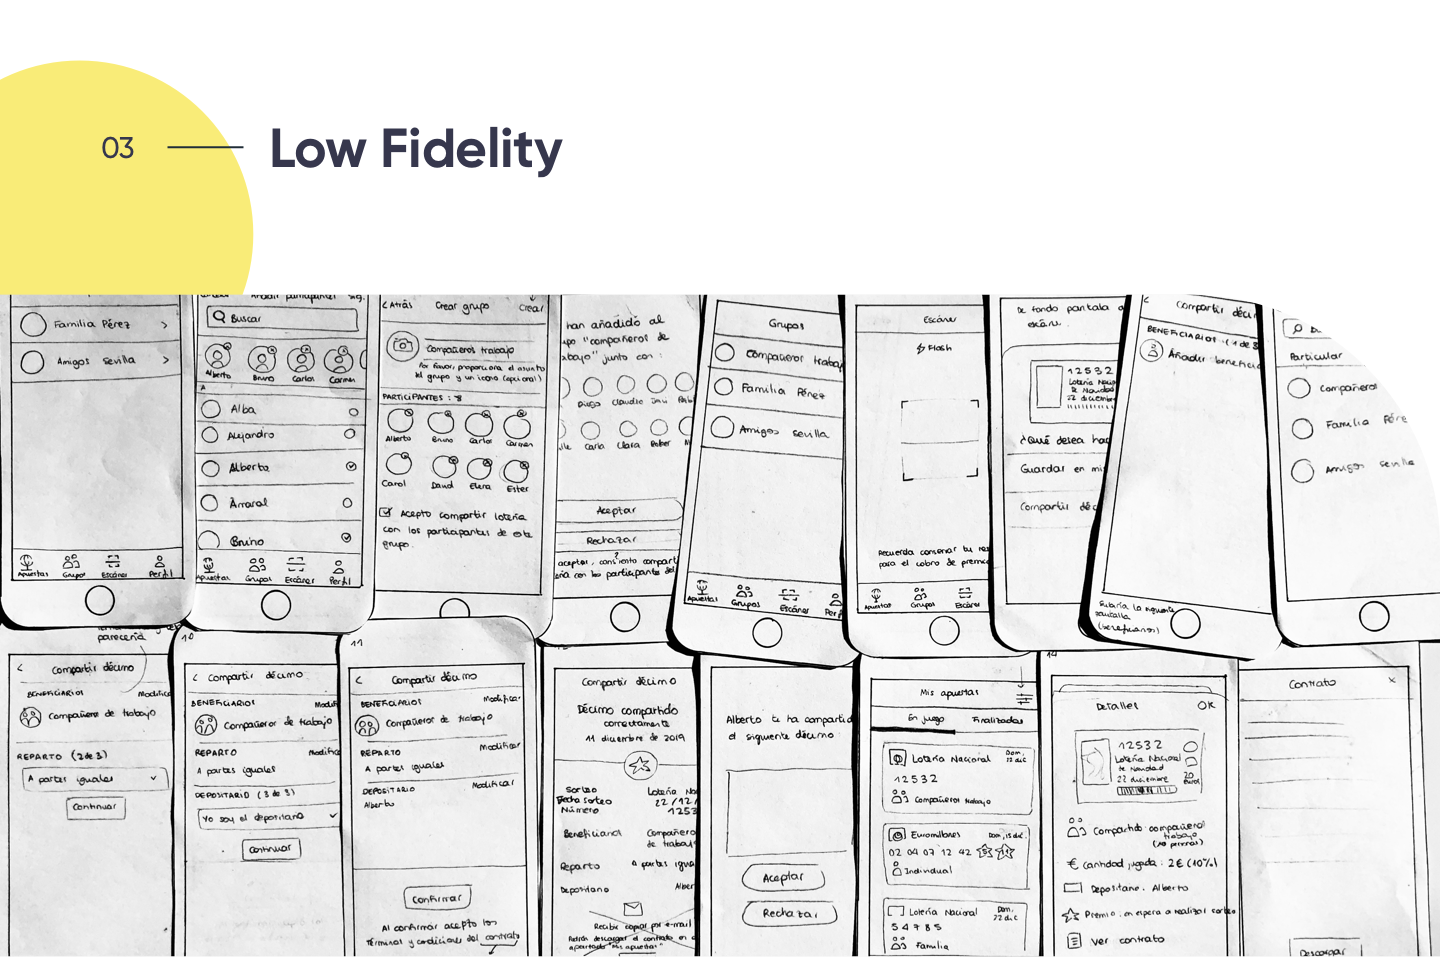 03
Low Fidelity
Familia Pérez
Amigos Sevilla
Apuestas Grupos Escáner Perfil
Buscar
Alberto Bruno Carlos Carmen
A
Alba
Alejandro
Alberto
Amaral
Bruno
Apuestas Grupos Escáner Perfil
< Atrás Crear grupo Crear
Compañeros trabajo
Por favor, proporciona el asunto
del grupo y un icono (opcional)
PARTICIPANTES : 8
Alberto Bruno Carlos Carmen
Carol David Elena Ester
Acepto compartir lotería
con los participantes de este
grupo.
han añadido al
"compañeros de
junto con :
Diego Claudia Javi
Carla Clara
Aceptar
Rechazar
Grupos
Compañeros trabajo
Familia Pérez
Amigos Sevilla
Apuestas Grupos Escáner
Escáner
Flash
Recuerda conservar tu
para el cobro de
Apuestas Grupos Escáner
De fondo pantalla
escáner.
12532
Lotería
de Navidad
22 diciembre
¿Qué desea
Guardar en
Compartir
< Compartir
BENEFICIARIOS (1 de 3
Añadir
Subiría la siguiente
pantalla
(beneficiarios)
Particular
Compañeros
Familia
Amigos Sevilla
parecería
< Compartir décimo
BENEFICIARIOS
Compañeros de trabajo
REPARTO (2 de 3)
A partes iguales
Continuar
10
< Compartir décimo
BENEFICIARIOS
Compañeros de trabajo
REPARTO
A partes iguales
DEPOSITARIO (3 de 3)
Yo soy el depositario
Continuar
11
< Compartir décimo
BENEFICIARIOS Modificar
Compañeros de trabajo
REPARTO Modificar
A partes iguales
DEPOSITARIO Modificar
Alberto
Confirmar
Al confirmar acepto los
Términos y condiciones del contrato
Compartir décimo
Décimo compartido
correctamente
11 diciembre de 2019
Sorteo Lotería
Fecha sorteo 22/12/
Número 1253
Beneficiarios Compañeros
de trabajo
Reparto A partes
Depositario
Recibir copia por e-mail
Podrás descargar el contrato en
apartado "Mis apuestas"
Alberto te ha
el siguiente décimo
Aceptar
Rechazar
Mis apuestas
En juego Finalizadas
Lotería Nacional Dom,
22 dic
12532
Compañeros trabajo
Euromillones Dom, 15 dic.
02 04 07 12 42
Individual
Lotería Nacional Dom.
22 dic
54785
Familia
14
Detalles OK
12532
Lotería Nacional
de Navidad
22 diciembre
20
euros
Compartido: compañeros
trabajo
(10 personas)
€ cantidad jugada : 2€ (10%)
Depositario: Alberto
Premio: en espera a realizar sorteo
Ver contrato
Contrato ×
Descargar